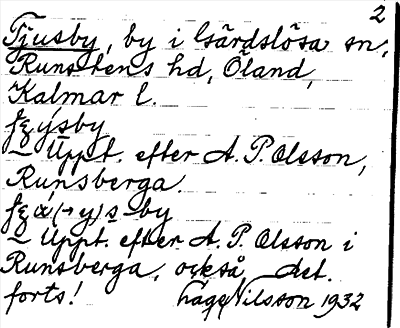 2
Tjusby, by i Gärdslösa sn,
Runstens hd, Öland,
Kalmar l.
‒ Uppt. efter A. P. Olsson,
Runsberga.
‒ Uppt. efter A. P. Olsson i
Runsberga, också det.
forts! Lage Nilsson 1932